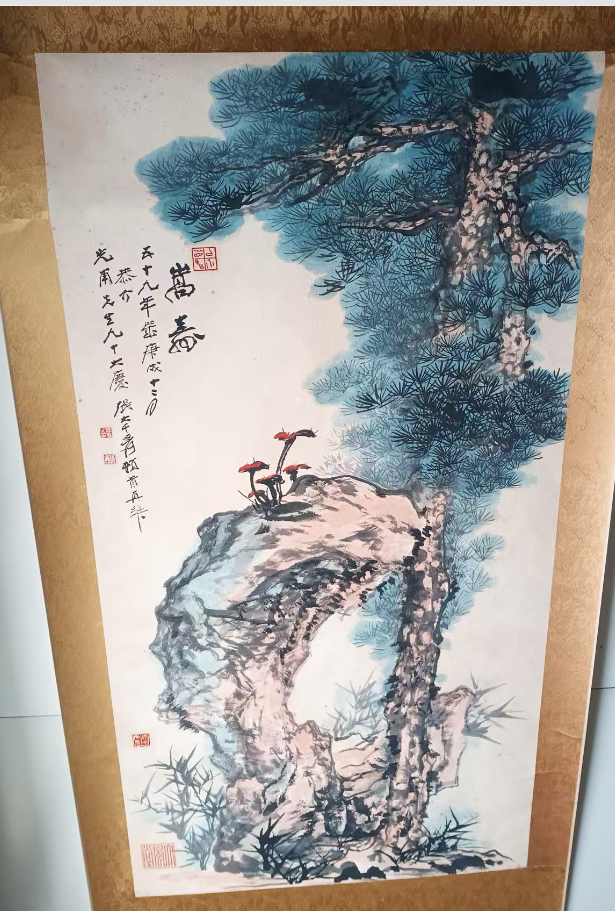 嵩壽
五十九年歲庚戌十二月
恭介
光甫先生九十大慶 張大千爰頓首再拜